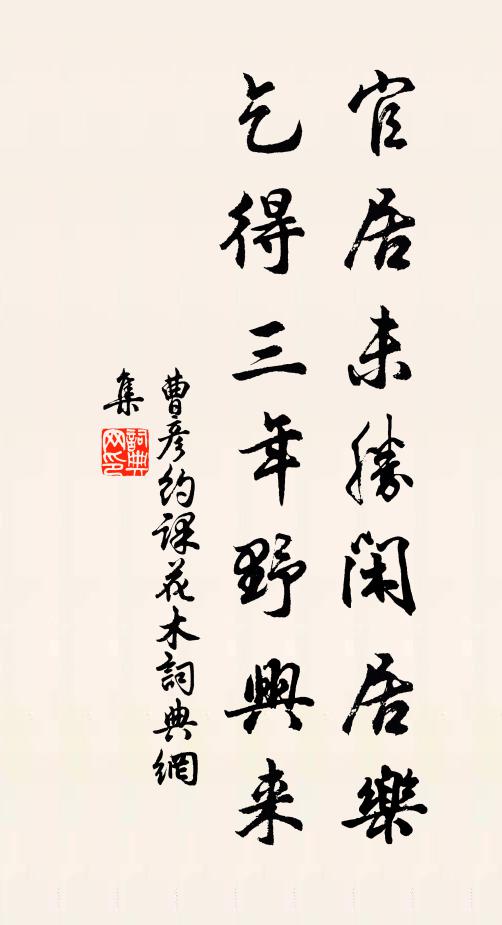 官居未勝閑居樂
乞得三年野興来
曹彦約課花木詞典網
集
詞典
网印